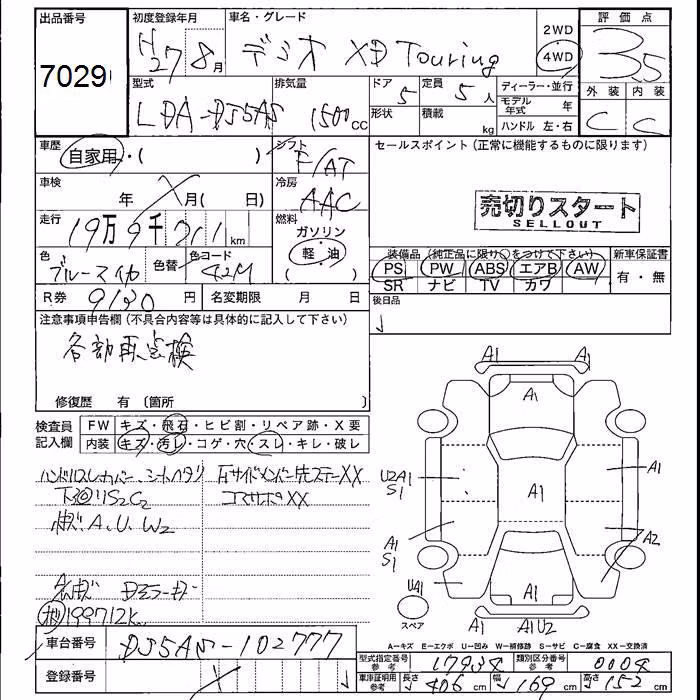 出品番号
7029
初度登録年月
H27 8月
車名・グレード
デミオ XD Touring
2WD
4WD
評価点
3.5
外装 内装
C C
型式
LDA-DJ5AS
排気量
1500cc
ドア
5
形状
定員
5人
積載
kg
ディーラー・並行
モデル年式 年
ハンドル 左・右
車歴
自家用・( )
シフト
F/AT
セールスポイント (正常に機能するものに限ります)
売切りスタート
SELLOUT
車検
年 月( 日)
冷房
AAC
走行
19万9千711km
燃料
ガソリン
(軽油)
色
色替
色コード
42M
装備品 (純正品に限り○をつけて下さい)
PS PW ABS エアB AW
SR ナビ TV カワ
新車保証書
有・無
R券 9130円
名変期限 月 日
後日品
注意事項申告欄 (不具合内容等は具体的に記入して下さい)
各部要点検
修復歴 有 〔箇所 〕
検査員記入欄
FW キズ・飛石・ヒビ割・リペア跡・X要
内装 キズ・汚レ・コゲ・穴・スレ・キレ・破レ
右サイドメンバー先ステーXX
コアサポXX
A.U.W2
199712k
A1 A1
A1
U2A1
S1
A1
A1
A1
S1
A2
UA1
A1
A1U2
スペア
A=キズ E=エクボ U=凹み W=補修跡 S=サビ C=腐食 XX=交換済
車台番号
DJ5AS-102777
登録番号
型式指定番号 参考
17934
類別区分番号 参考
0004
車庫証明用 参考
長さ 406cm
幅 169cm
高さ 152cm